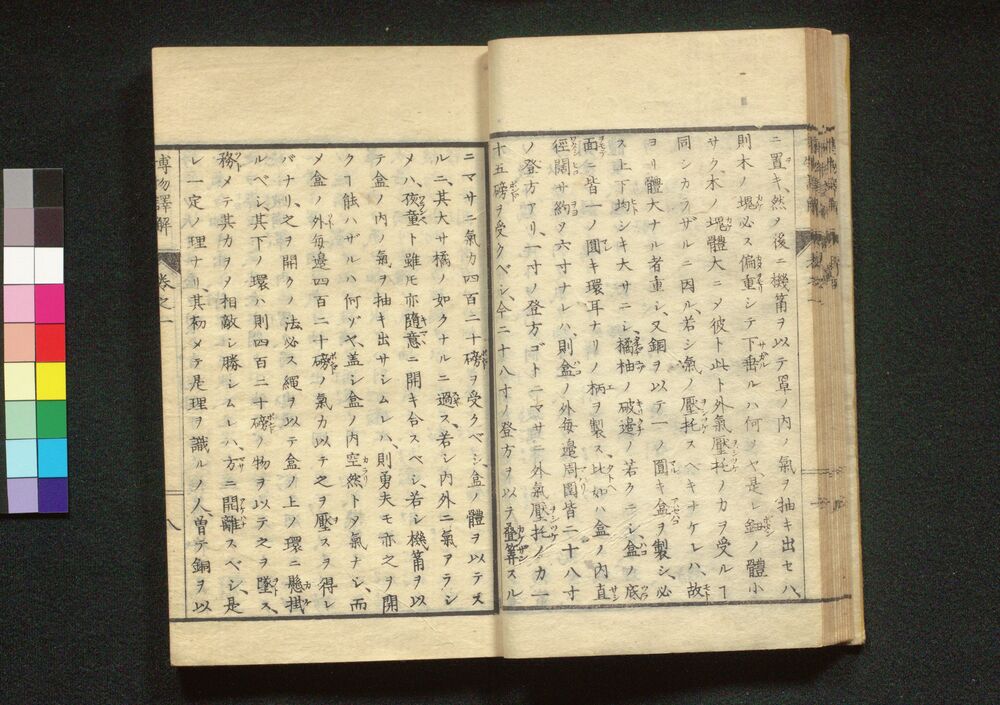 ニ置キ、然ヲ後ニ機筩ヲ以テ罩ノ内ノ氣ヲ抽キ出セハ、
則木ノ塊必ス偏重シテ下垂ルハ何ソヤ、是レ鈿ノ體小
サク、木ノ塊體大ニメ彼ト此ト外氣壓托ノカヲ受ルヿ
同シカラザルニ因ル、若シ氣ノ壓托スベキナケレハ、故
ヨリ體大ナル者重シ、又銅ヲ以テ一ノ圓キ盒ヲ製シ、必
ス上下均シキ大サニシ、橘柚ノ破邊ノ若クニシ、盒ノ底
面ニ皆一ノ圓キ環耳ナリノ柄ヲ製ス、比如ハ盒ノ内直
徑闊サ約ヲ六寸ナレハ、則盒ノ外毎邊周圍皆二十八寸
ノ登方アリ、一寸ノ登方ゴトニマサニ外氣壓托ノカ一
十五磅ヲ受クベシ、今二十八寸ノ登方ヲ以テ登算スル
ニマサニ氣カ四百二十磅ヲ受クベシ、盒ノ體ヲ以テス
ルニ、其大サ橘ノ如クナルニ過ス、若シ内外ニ氣アラシ
メハ、孩童ト雖モ亦隨意ニ開キ合スベシ、若シ機筩ヲ以
テ盒ノ内ノ氣ヲ抽キ出サシムレハ、則勇夫モ亦之ヲ開
クヿ能ハザルハ何ゾヤ、盖シ盒ノ内空然トメ氣ナシ、而
メ盒ノ外毎邊四百二十磅ノ氣力以テ之ヲ壓スヲ得レ
バナリ、之ヲ開クノ法必ス繩ヲ以テ盒ノ上ノ環ニ懸掛
ルベシ、其下ノ環ハ則四百二十磅ノ物ヲ以テ之ヲ墜ス、
務メテ其カヲメ相敵シ勝シムレハ、方ニ間離スベシ、是
レ一定ノ理ナリ、其初メテ是理ヲ識ルノ人曽テ銅ヲ以
博物譯解 卷之一 八